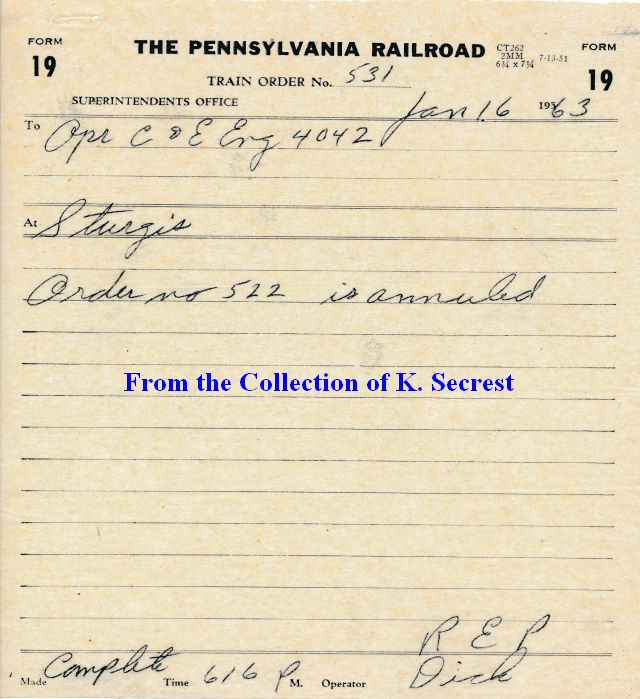 FORM 19
THE PENNSYLVANIA RAILROAD
CT262
2MM
6¾ x 7¼ 7-13-51
FORM 19
TRAIN ORDER No. 531
SUPERINTENDENTS OFFICE
Jan 16 1963
To Opr C & E Eng 4042
At Sturgis
Order no 522 is annuled
From the Collection of K. Secrest
R E P
Made Complete Time 616 P M. Operator Dick